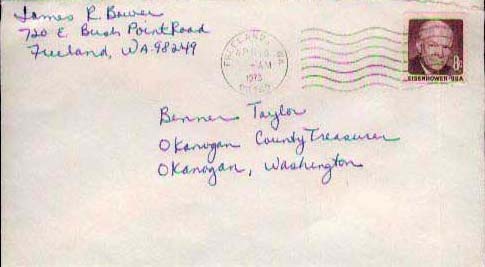 James R Bower
720 E. Bush Point Road
Freeland, WA 98249
FREELAND, WA
AM
1973
8c
EISENHOWER·USA
Benner Taylor
Okanogan County Treasurer
Okanogan, Washington